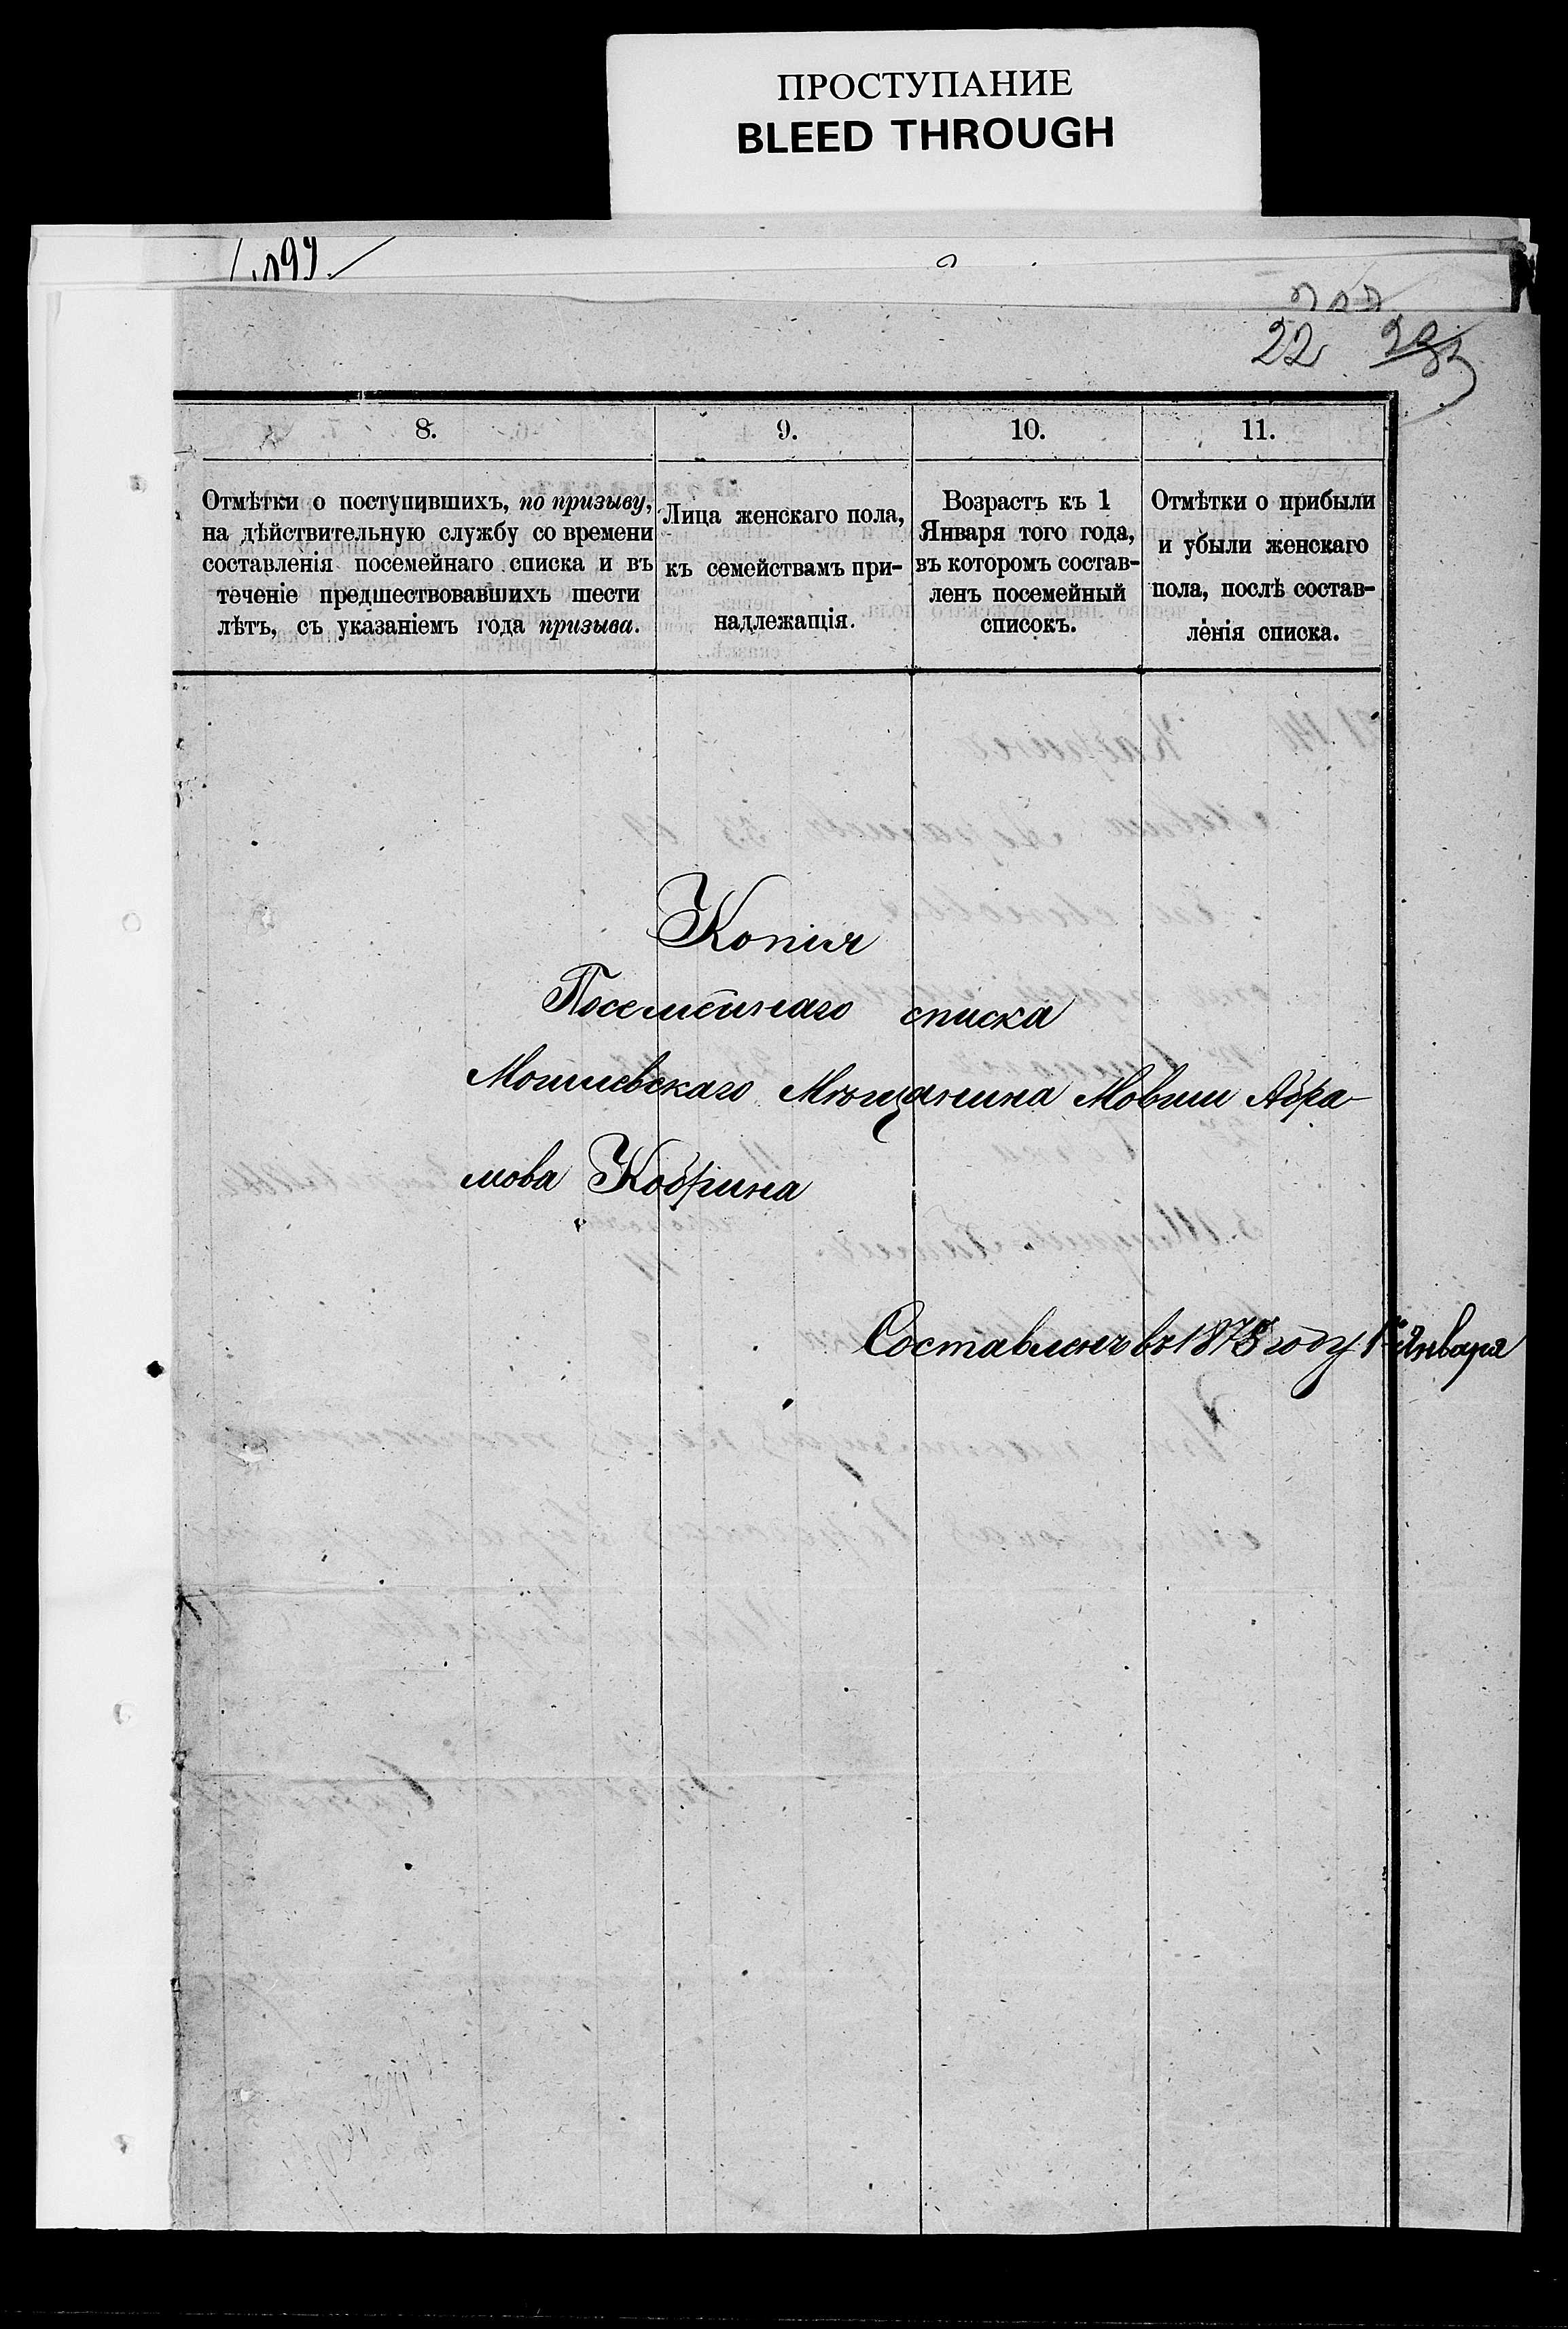 ПРОСТУПАНИЕ
BLEED THROUGH
22
8.
9.
10.
11.
Отмѣтки о поступившихъ, по призыву,
на дѣйствительную службу со времени
составленія посемейнаго списка и въ
теченіе предшествовавшихъ шести
лѣтъ, съ указаніемъ года призыва.
Лица женскаго пола,
къ семействамъ при-
надлежащія.
Возрастъ къ 1
Января того года,
въ которомъ состав-
ленъ посемейный
списокъ.
Отмѣтки о прибыли
и убыли женскаго
пола, послѣ состав-
ленія списка.
Копія
Посемейнаго списка
Могилевскаго Мѣщанина Мовши Абра-
мова Кобрина
Составленъ въ 1875 году 1го Января